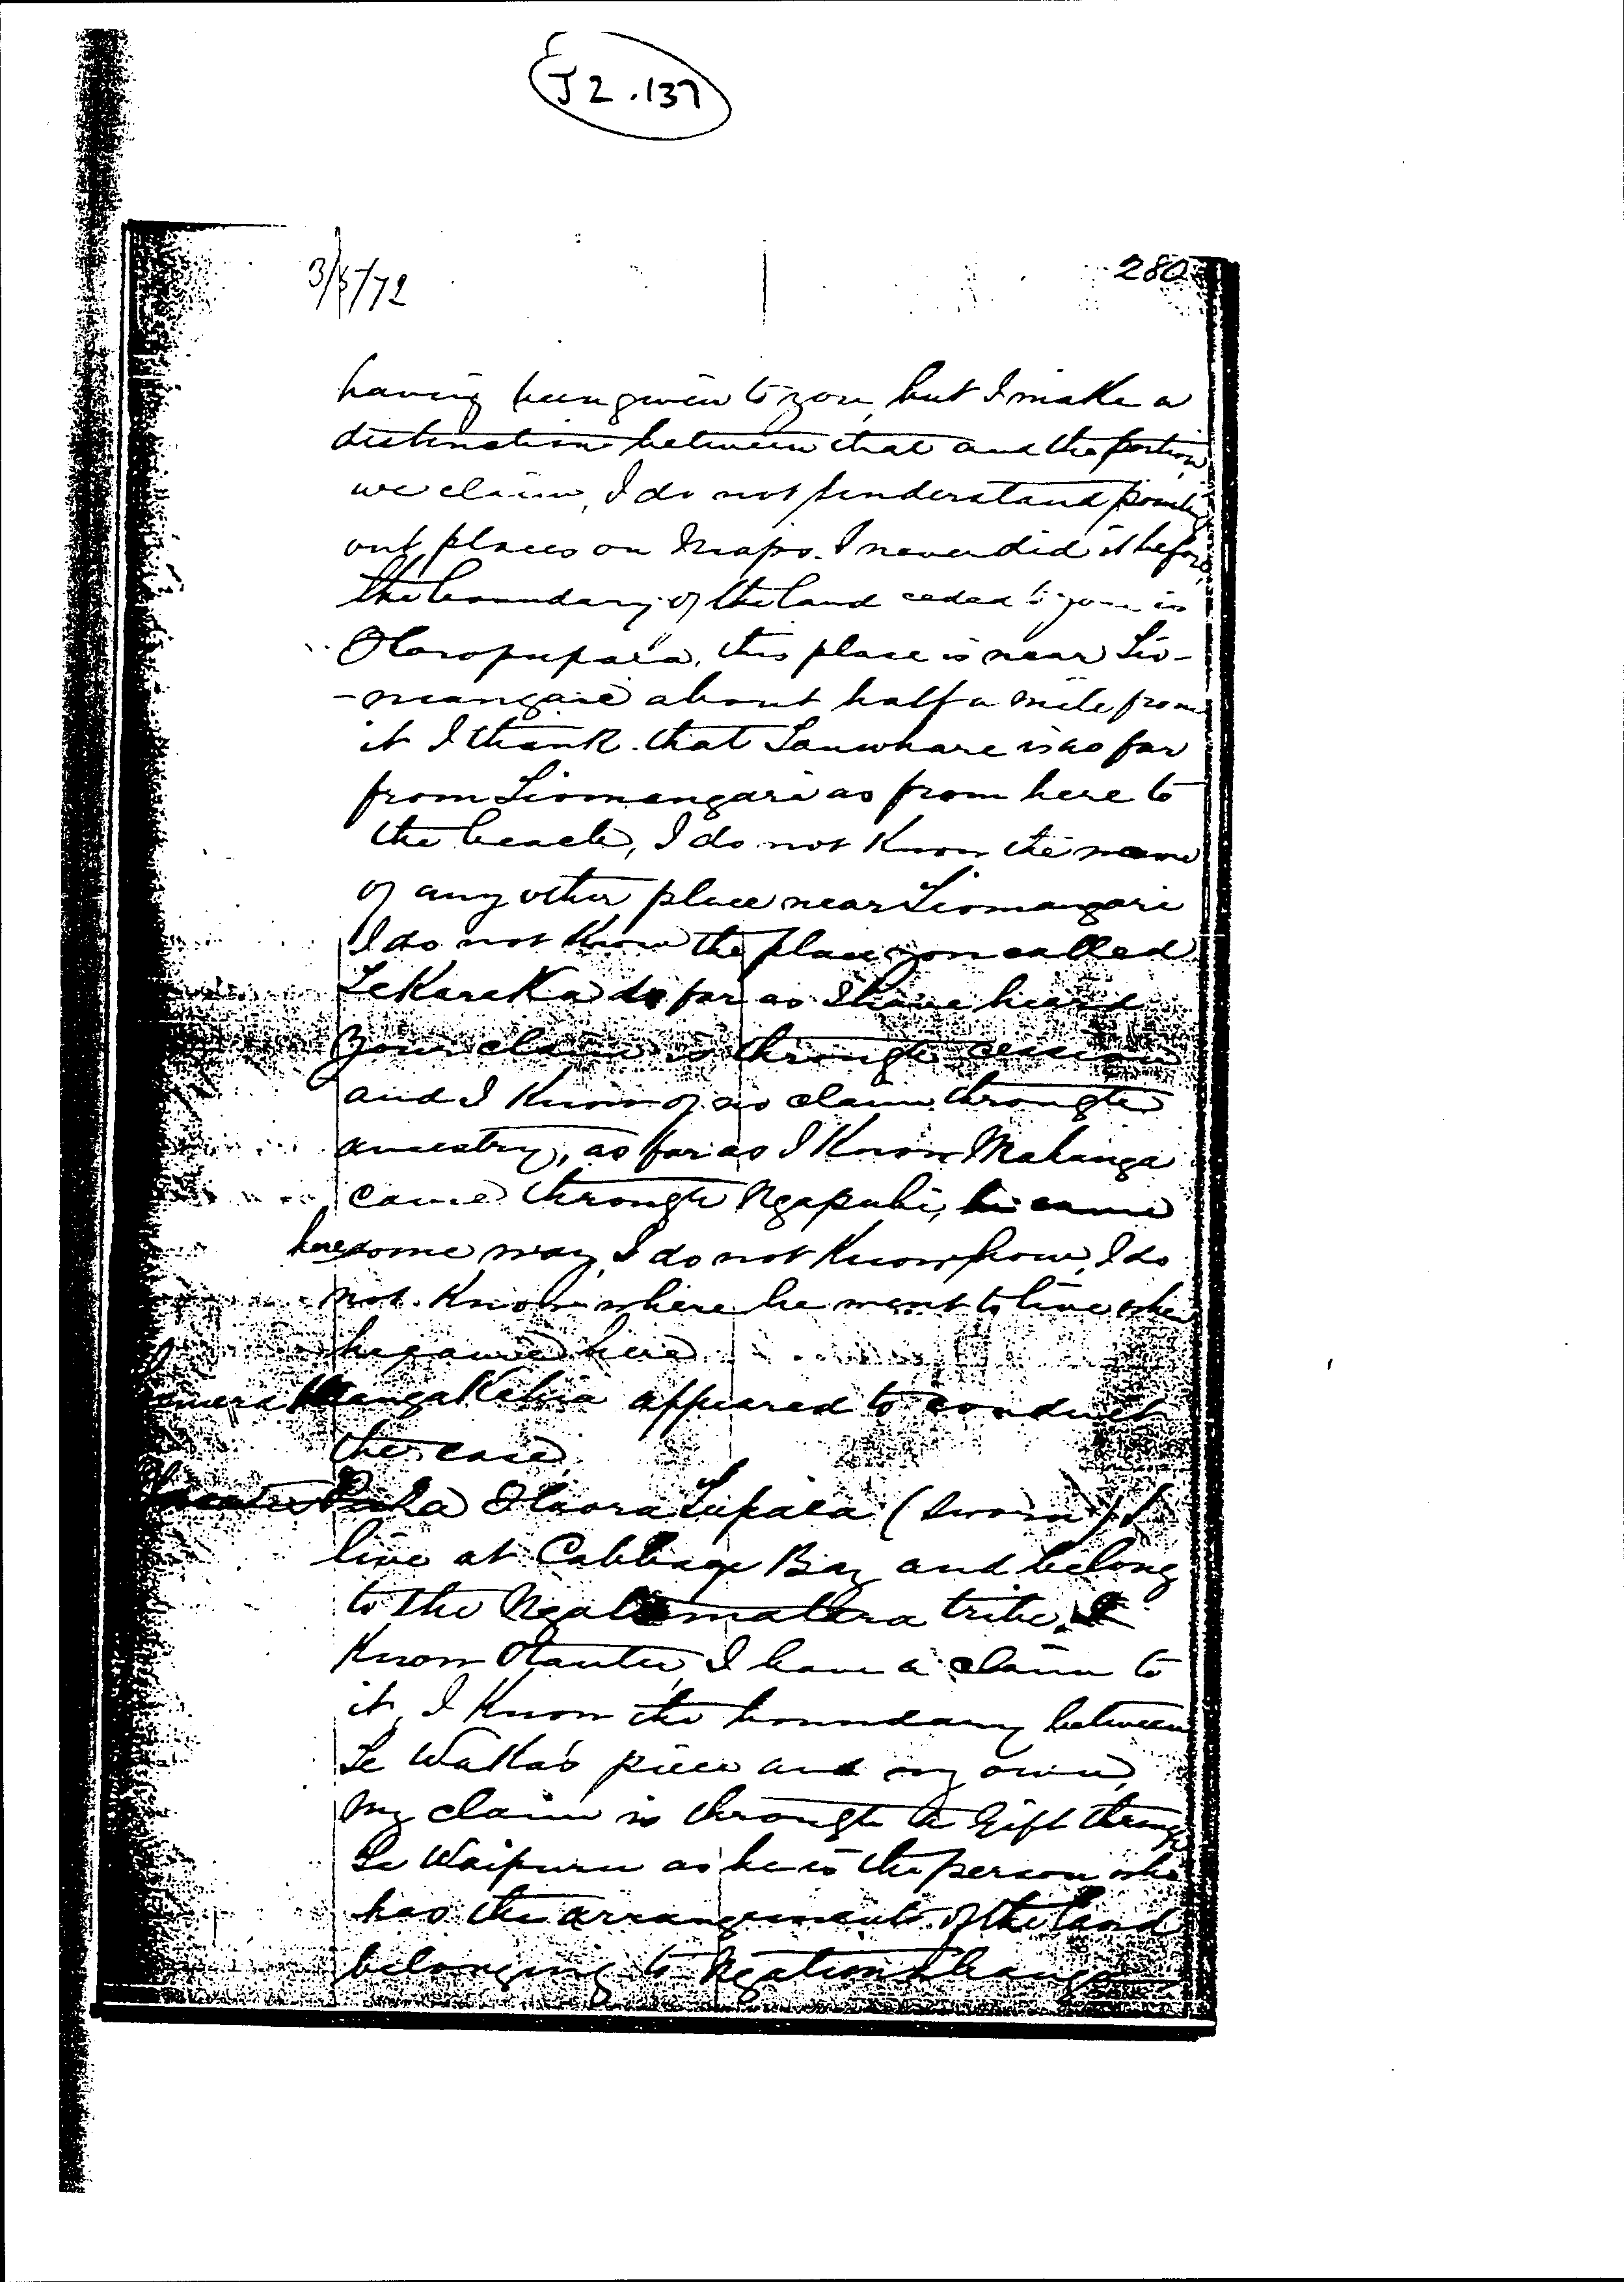 J2.137
3/5/72
280
having been given to you, but I make a
distinction between that and the portion
we claim, I do not understand pointing
out places on Maps. I never did it before,
the boundary of the land ceded to you is
Otaropupara, this place is near Tio-
-mangare about half a mile from
it I think. that Tauwhare is as far
from Tiomangari as from here to
the beach, I do not Know the name
of any other place near Tiomangari
I do not Know the place you called
Te Karaka so far as I have heard
Your claim is through cession
and I Know of no claim through
ancestry, as far as I Know Mahanga
came through Ngapuhi, he came
here some way, I do not Know how, I do
not Know where he went to live when
he came here
MangaKahia appeared to conduct
the case
Tupaea (Sworn) I
live at Cabbage Bay and belong
to the Ngatimatera tribe, I
Know Otautu, I have a claim to
it, I Know the boundary between
Te Waka's piece and my own,
My claim is through a Gift through
Te Waipuru as he is the person who
has the arrangements of the land
belonging to